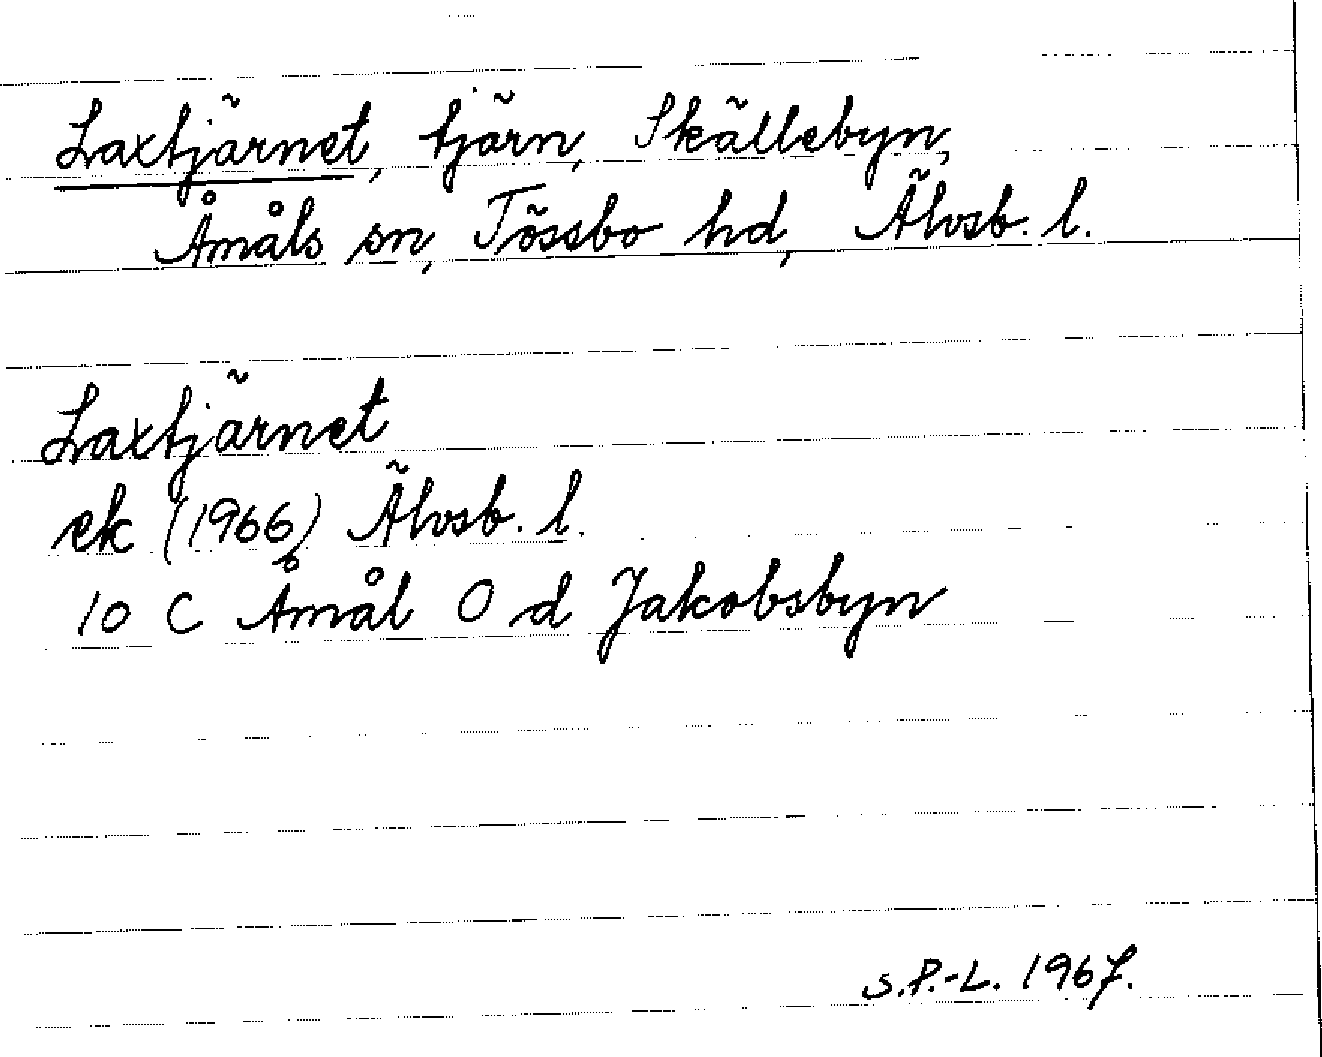 Laxtjärnet, tjärn, Skällebyn,
Åmåls sn, Tössbo hd, Älvsb. l.
Laxtjärnet
ek (1966) Älvsb. l.
10 C Åmål O d Jakobsbyn
S.P.-L. 1967.